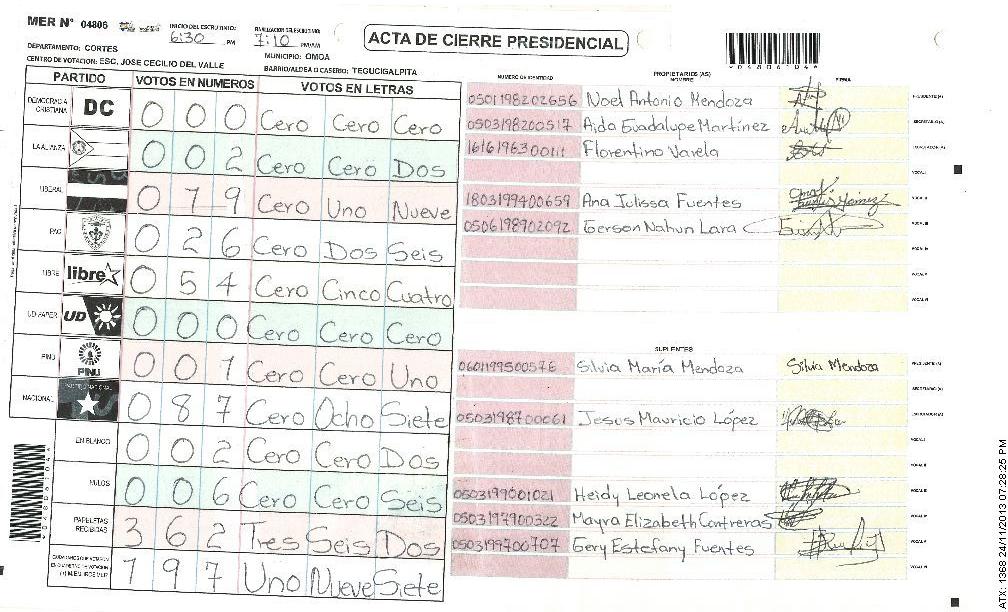 MER Nº 04806
INICIO DEL ESCRUTINIO:
6:30 PM
7:10 PM/AM
ACTA DE CIERRE PRESIDENCIAL
DEPARTAMENTO: CORTES
MUNICIPIO: OMOA
CENTRO DE VOTACION: ESC. JOSE CECILIO DEL VALLE
BARRIO/ALDEA O CASERIO: TEGUCIGALPITA
PARTIDO VOTOS EN NUMEROS VOTOS EN LETRAS
DEMOCRACIA CRISTIANA DC 0 0 0 Cero Cero Cero
LA ALIANZA 0 0 2 Cero Cero Dos
LIBERAL 0 7 9 Cero Uno Nueve
PAC 0 2 6 Cero Dos Seis
LIBRE libre 0 5 4 Cero Cinco Cuatro
UD FAPER UD 0 0 0 Cero Cero Cero
PINU PINU 0 0 1 Cero Cero Uno
NACIONAL PARTIDO NACIONAL 0 8 7 Cero Ocho Siete
EN BLANCO 0 0 2 Cero Cero Dos
NULOS 0 0 6 Cero Cero Seis
PAPELETAS RECIBIDAS 3 6 2 Tres Seis Dos
1 9 7 Uno Nueve Siete
NUMERO DE IDENTIDAD PROPIETARIOS (AS) NOMBRE FIRMA
0501198202656 Noel Antonio Mendoza PRESIDENTE (A)
0503198200517 Aida Guadalupe Martínez SECRETARIO (A)
Florentino Varela ESCRUTADOR (A)
VOCAL I
1803199400659 Ana Julissa Fuentes VOCAL II
0506198902092 Gerson Nahun Lara VOCAL III
VOCAL IV
VOCAL V
VOCAL VI
SUPLENTES
0601199500576 Silvia María Mendoza Silvia Mendoza PRESIDENTE (A)
SECRETARIO (A)
0503198700061 Jesus Mauricio López ESCRUTADOR (A)
VOCAL I
VOCAL II
0503199001021 Heidy Leonela López VOCAL III
0503197900322 Mayra Elizabeth Contreras VOCAL IV
0503199700707 Gery Estefany Fuentes VOCAL V
VOCAL VI
ATX: 1368 24/11/2013 07:28:25 PM